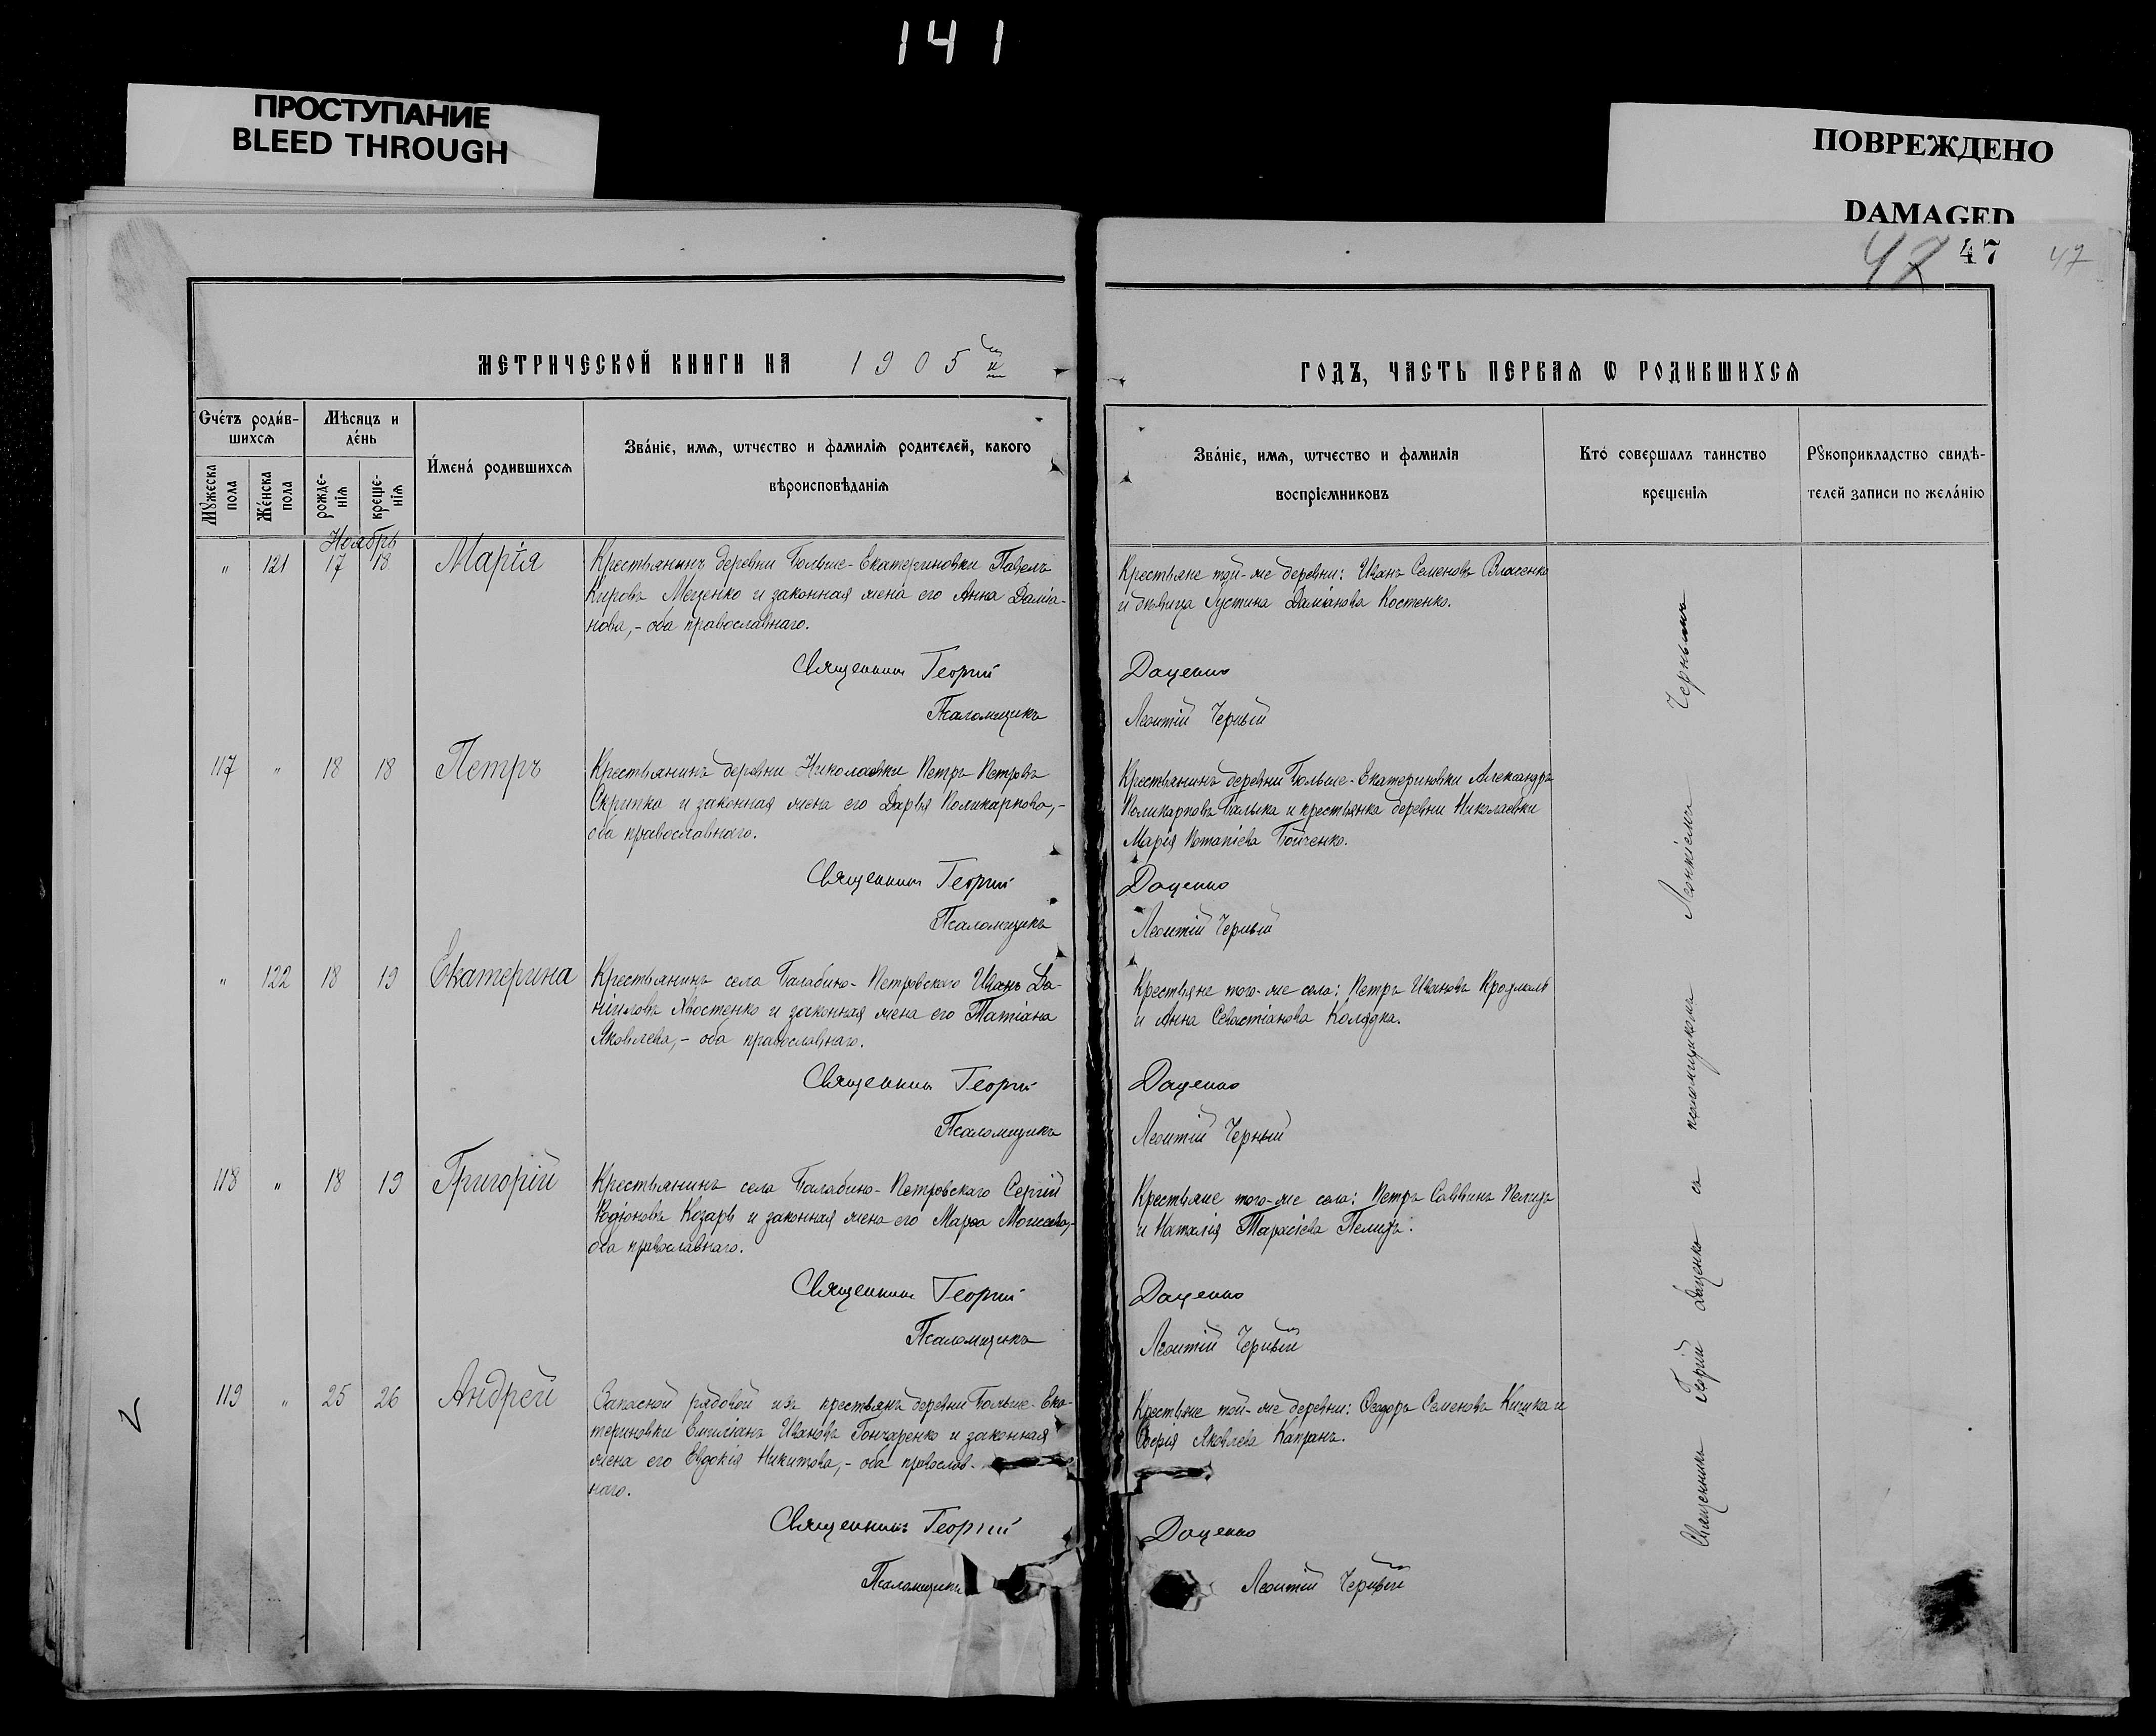 141
ПРОСТУПАНИЕ
BLEED THROUGH
ПОВРЕЖДЕНО
DAMAGED
47 47 47
МЕТРИЧЕСКОЙ КНИГИ НА 1905й
ГОДЪ, ЧАСТЬ ПЕРВАЯ Ѡ РОДИВШИХСЯ
Счетъ родив-
шихся
Мѣсяцъ и
день
Мужеска
пола
Женска
пола
рожде-
нія
креще-
нія
Имена родившихся
Званіе, имя, ѡтчество и фамилія родителей, какого
вѣроисповѣданія
Званіе, имя, ѡтчество и фамилія
воспріемниковъ
Кто совершалъ таинство
крещенія
Рукоприкладство свидѣ-
телей записи по желанію
Ноябрь
" 121 17 18 Марія
Крестьянинъ деревни Больше-Екатериновки Павелъ
Кировъ Меценко и законная жена его Анна Даміа-
нова,- оба православнаго.
Крестьяне той-же деревни: Иванъ Семеновъ Власенко
и дѣвица Іустина Даміанова Костенко.
Священникъ Георгій Даценко
Псаломщикъ Леонтій Черный
117 " 18 18 Петръ
Крестьянинъ деревни Николаевки Петръ Петровъ
Скрипка и законная жена его Дарья Поликарпова,-
оба православнаго.
Крестьянинъ деревни Больше-Екатериновки Александръ
Поликарповъ Балыка и крестьянка деревни Николаевки
Марія Потапіева Бойченко.
Священникъ Георгій Даценко
Псаломщикъ Леонтій Черный
" 122 18 19 Екатерина
Крестьянинъ села Балабино-Петровскаго Иванъ Да-
ніиловъ Хвостенко и законная жена его Татіана
Яковлева,- оба православнаго.
Крестьяне того-же села: Петръ Ивановъ
и Анна Севастіанова Колядка.
Священникъ Георгій Даценко
Псаломщикъ Леонтій Черный
118 " 18 19 Григорій
Крестьянинъ села Балабино-Петровскаго Сергій
Козарь и законная жена его Марѳа Моисеева,-
оба православнаго.
Крестьяне того-же села: Петръ Саввинъ Пелихъ
и Наталія Тарасіева Пелихъ.
Священникъ Георгій Даценко
Псаломщикъ Леонтій Черный
119 " 25 26 Андрей
Запасной рядовой изъ крестьянъ деревни Больше-Ека-
териновки Емиліанъ Ивановъ Гончаренко и законная
жена его Евдокія Никитова,- оба православ-
наго.
Крестьяне той-же деревни: Ѳеодоръ Семеновъ Кишка и
Софія Яковлева Капранъ.
Священникъ Георгій Даценко
Псаломщикъ Леонтій Черный
Священникъ Георгій Даценко съ псаломщикомъ Леонтіемъ Чернымъ